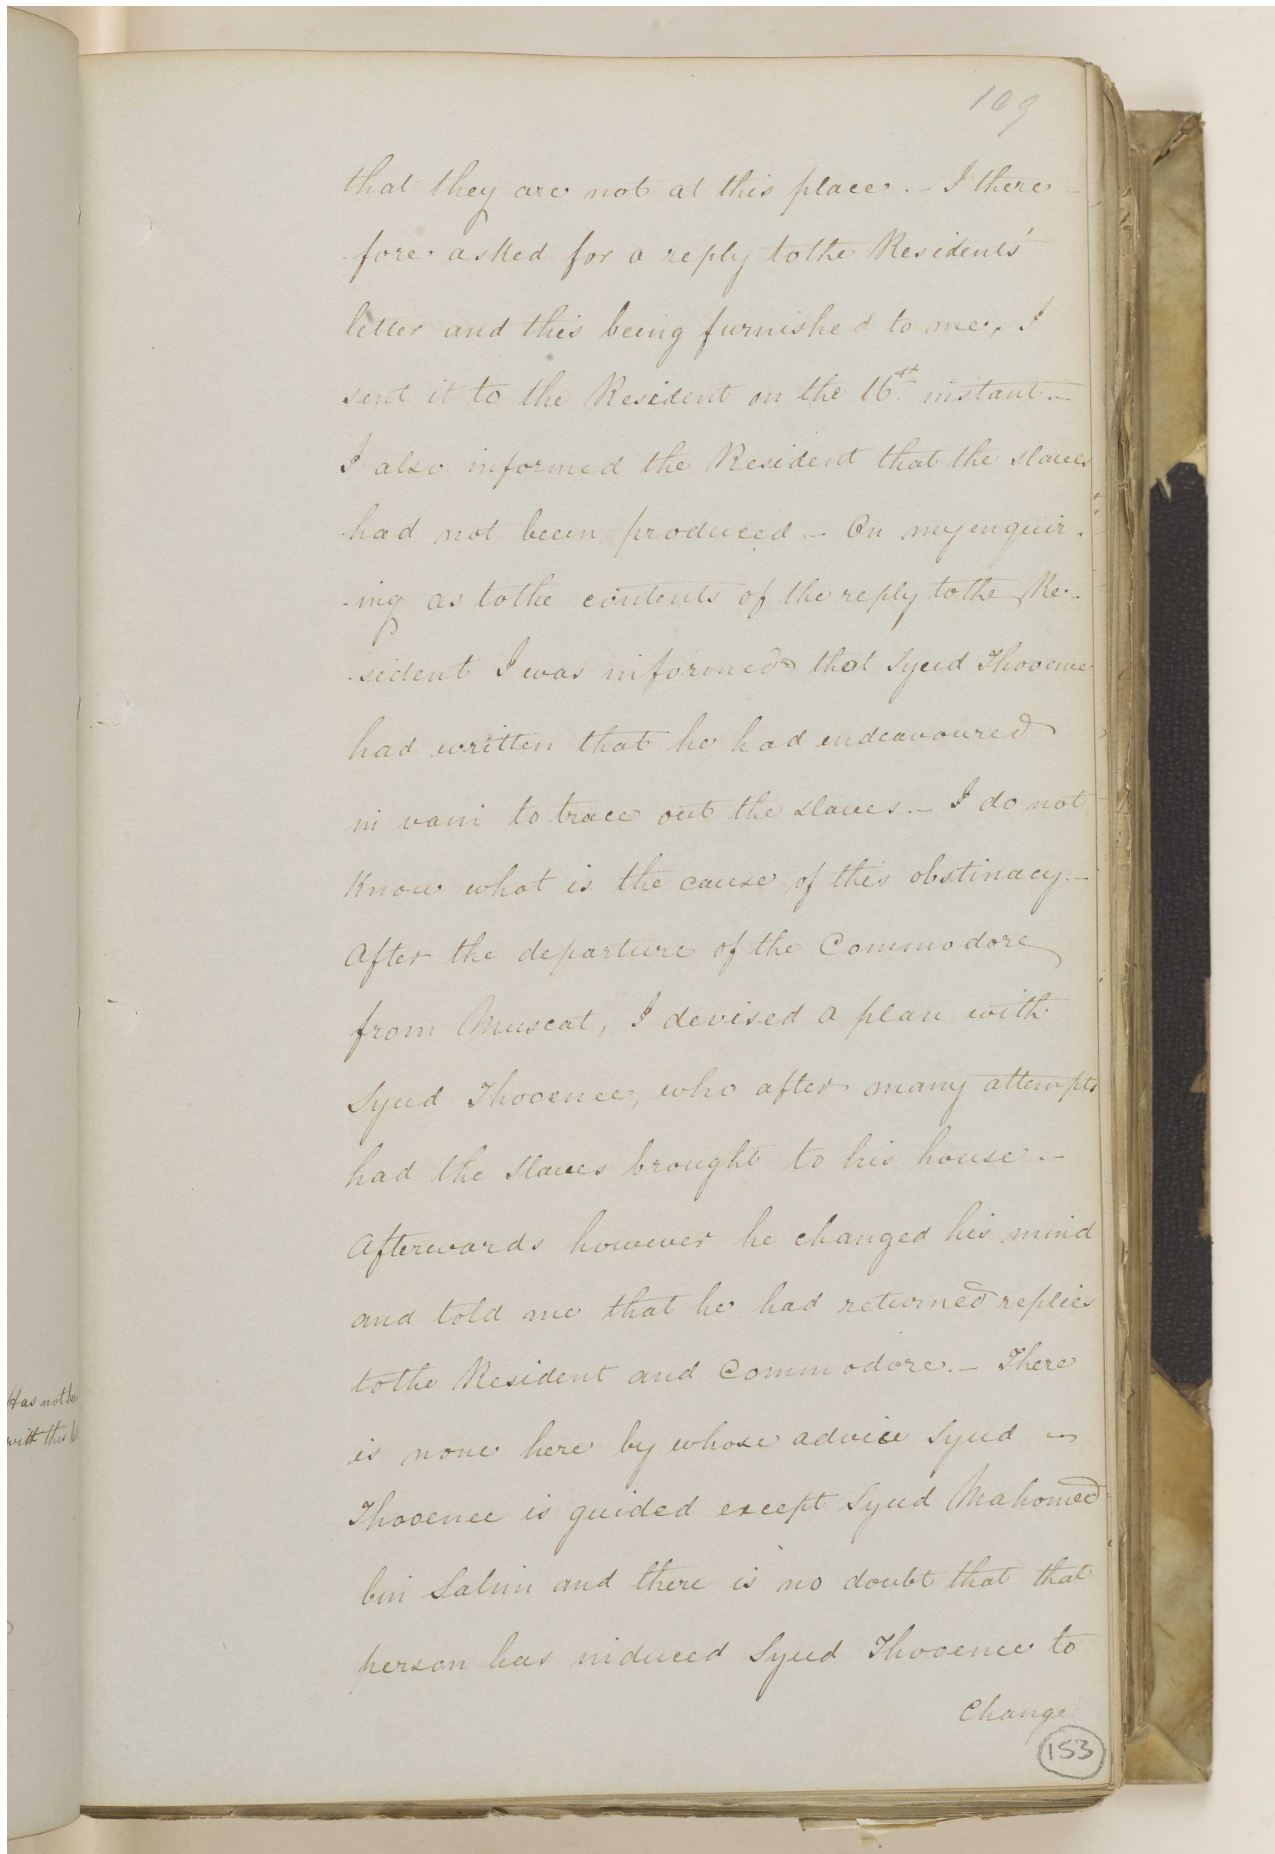 109
that they are not at this place. – I there –
fore asked for a reply to the Residents'
letter and this being furnished to me, I
sent it to the Resident on the 16th instant. –
I also informed the Resident that the slaves
had not been produced – On my enquir.
-ing as to the contents of the reply to the Re.
-sident I was informed that Syud Thooenee
had written that he had endeavoured
in vain to trace out the slaves. – I do not
Know what is the cause of this obstinacy. –
After the departure of the Commodore
from Muscat, I devised a plan with
Syud Thooenee, who after many attempts
had the slaves brought to his house. –
Afterwards however he changed his mind
and told me that he had returned replies
to the Resident and Commodore. – There
is none here by whose advice Syud –
Thooenee is guided except Syud Mahomed
bin Salim and there is no doubt that that
person has induced Syud Thooenee to
Change
153
Has not
with this